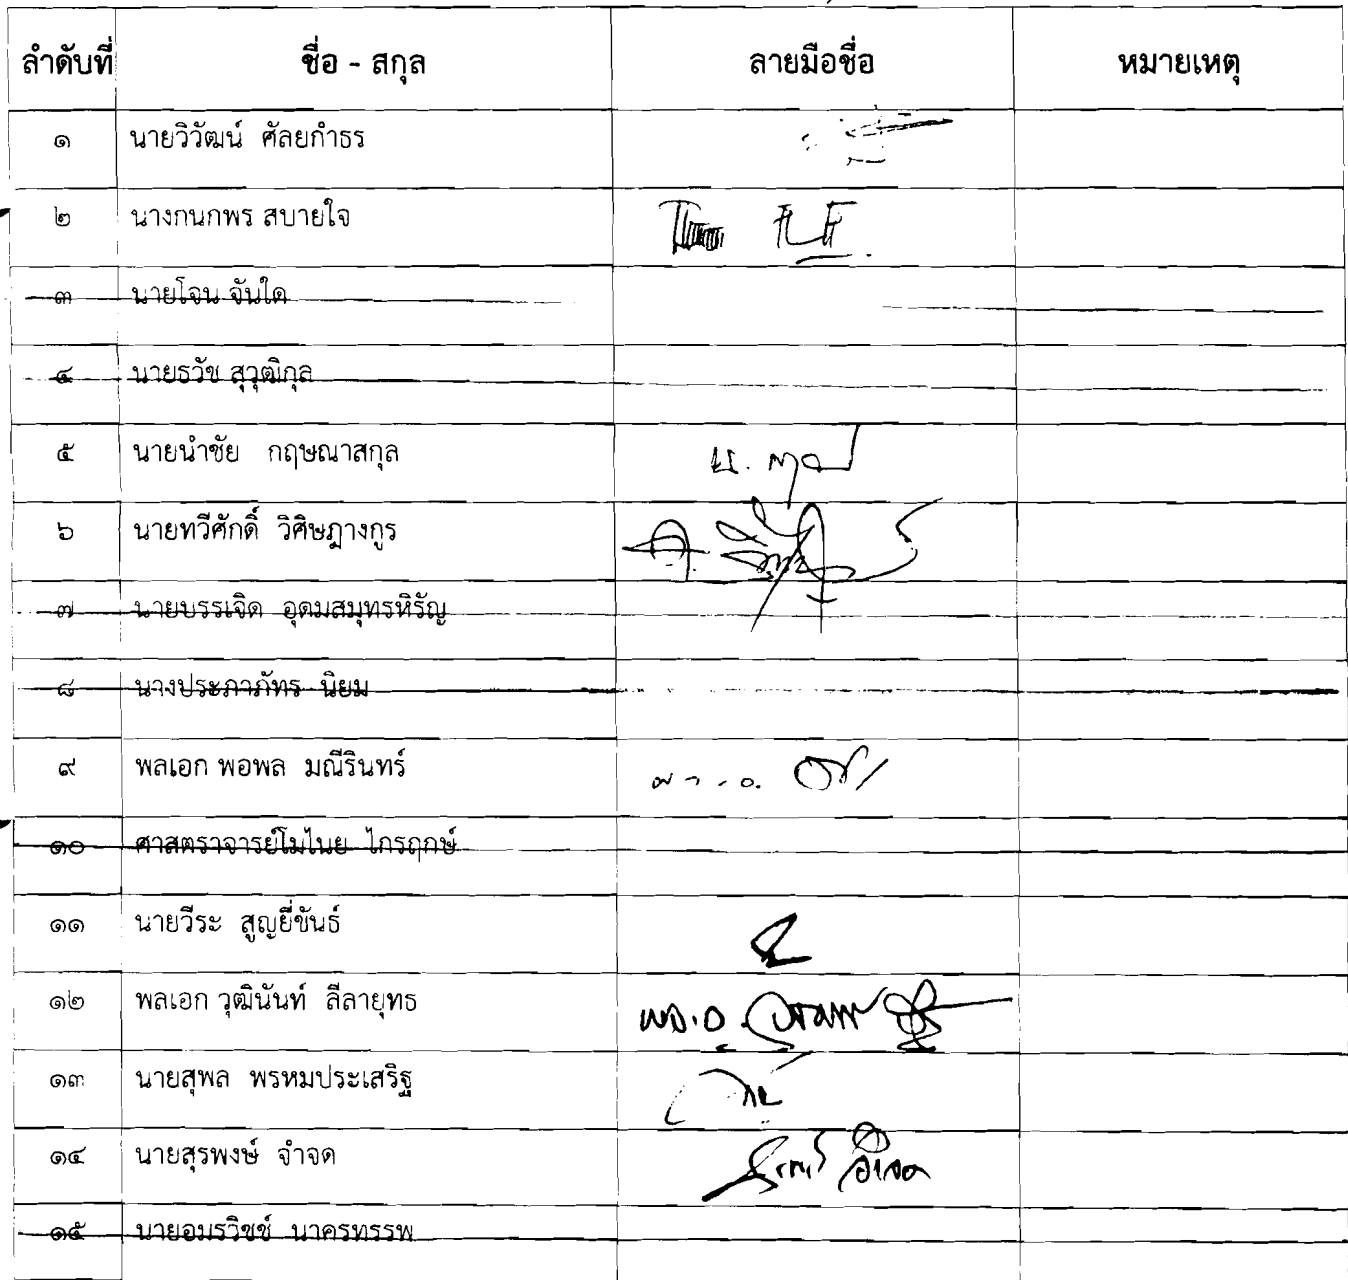 ลำดับที่ ชื่อ - สกุล ลายมือชื่อ หมายเหตุ
๑ นายวิวัฒน์ ศัลยกำธร
๒ นางกนกพร สบายใจ
๓ นายโจน จันใด
๔ นายธวัช สุวุฒิกุล
๕ นายนำชัย กฤษณาสกุล
๖ นายทวีศักดิ์ วิศิษฎางกูร
๗ นายบรรเจิด อุดมสมุทรหิรัญ
๘ นางประภาภัทร นิยม
๙ พลเอก พอพล มณีรินทร์
๑๐ ศาสตราจารย์โมไนย ไกรฤกษ์
๑๑ นายวีระ สูญยี่ขันธ์
๑๒ พลเอก วุฒินันท์ ลีลายุทธ
๑๓ นายสุพล พรหมประเสริฐ
๑๔ นายสุรพงษ์ จำจด
๑๕ นายอมรวิชช์ นาครทรรพ